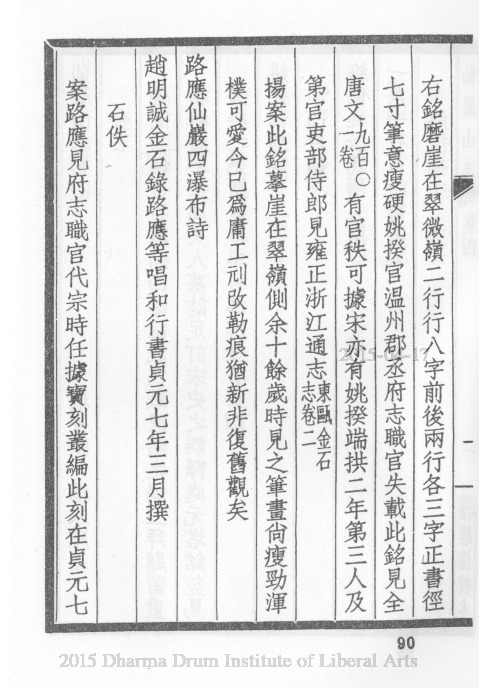 右銘磨崖在翠微嶺二行行八字前後兩行各三字正書徑
七寸筆意瘦硬姚揆官温州郡丞府志職官失載此銘見全
唐文九百一卷○有官秩可據宋亦有姚揆端拱二年第三人及
第官吏部侍郎見雍正浙江通志東甌金石志卷二
揚案此銘摹崖在翠嶺側余十餘歲時見之筆畫尚瘦勁渾
樸可愛今已爲庸工刓改勒痕猶新非復舊觀矣
路應仙巖四瀑布詩
趙明誠金石錄路應等唱和行書貞元七年三月撰
石佚
案路應見府志職官代宗時任據寶刻叢編此刻在貞元七
二
90
2015-04-17
2015 Dharma Drum Institute of Liberal Arts